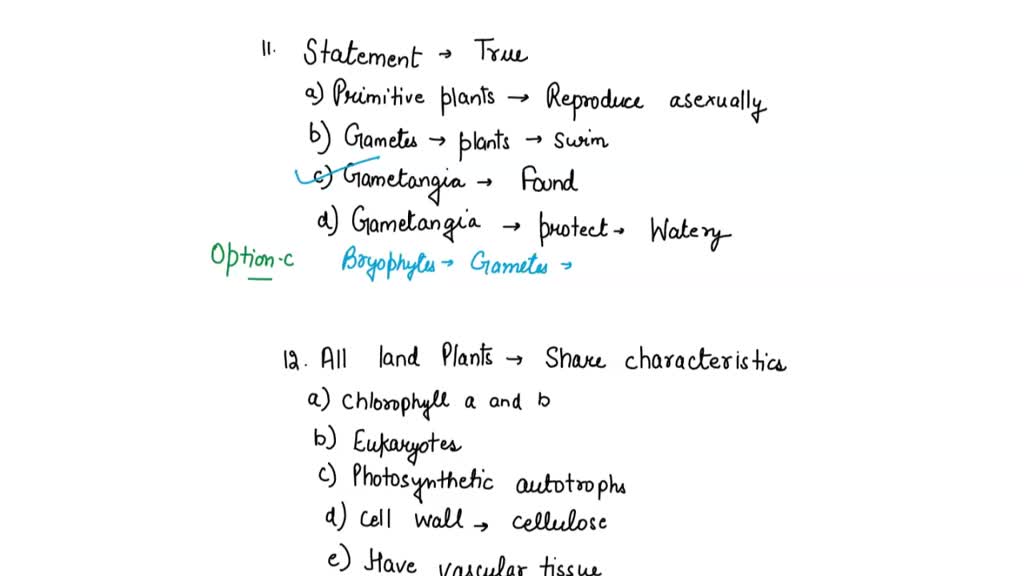 11. Statement → True
a) Primitive plants → Reproduce asexually
b) Gametes → plants → swim
c) Gametangia → Found
d) Gametangia → protect → Watery
Option-c Bryophytes → Gametes →
12. All land Plants → Share characteristics
a) Chlorophyll a and b
b) Eukaryotes
c) Photosynthetic autotrophs
d) Cell wall → cellulose
e) Have vascular tissue